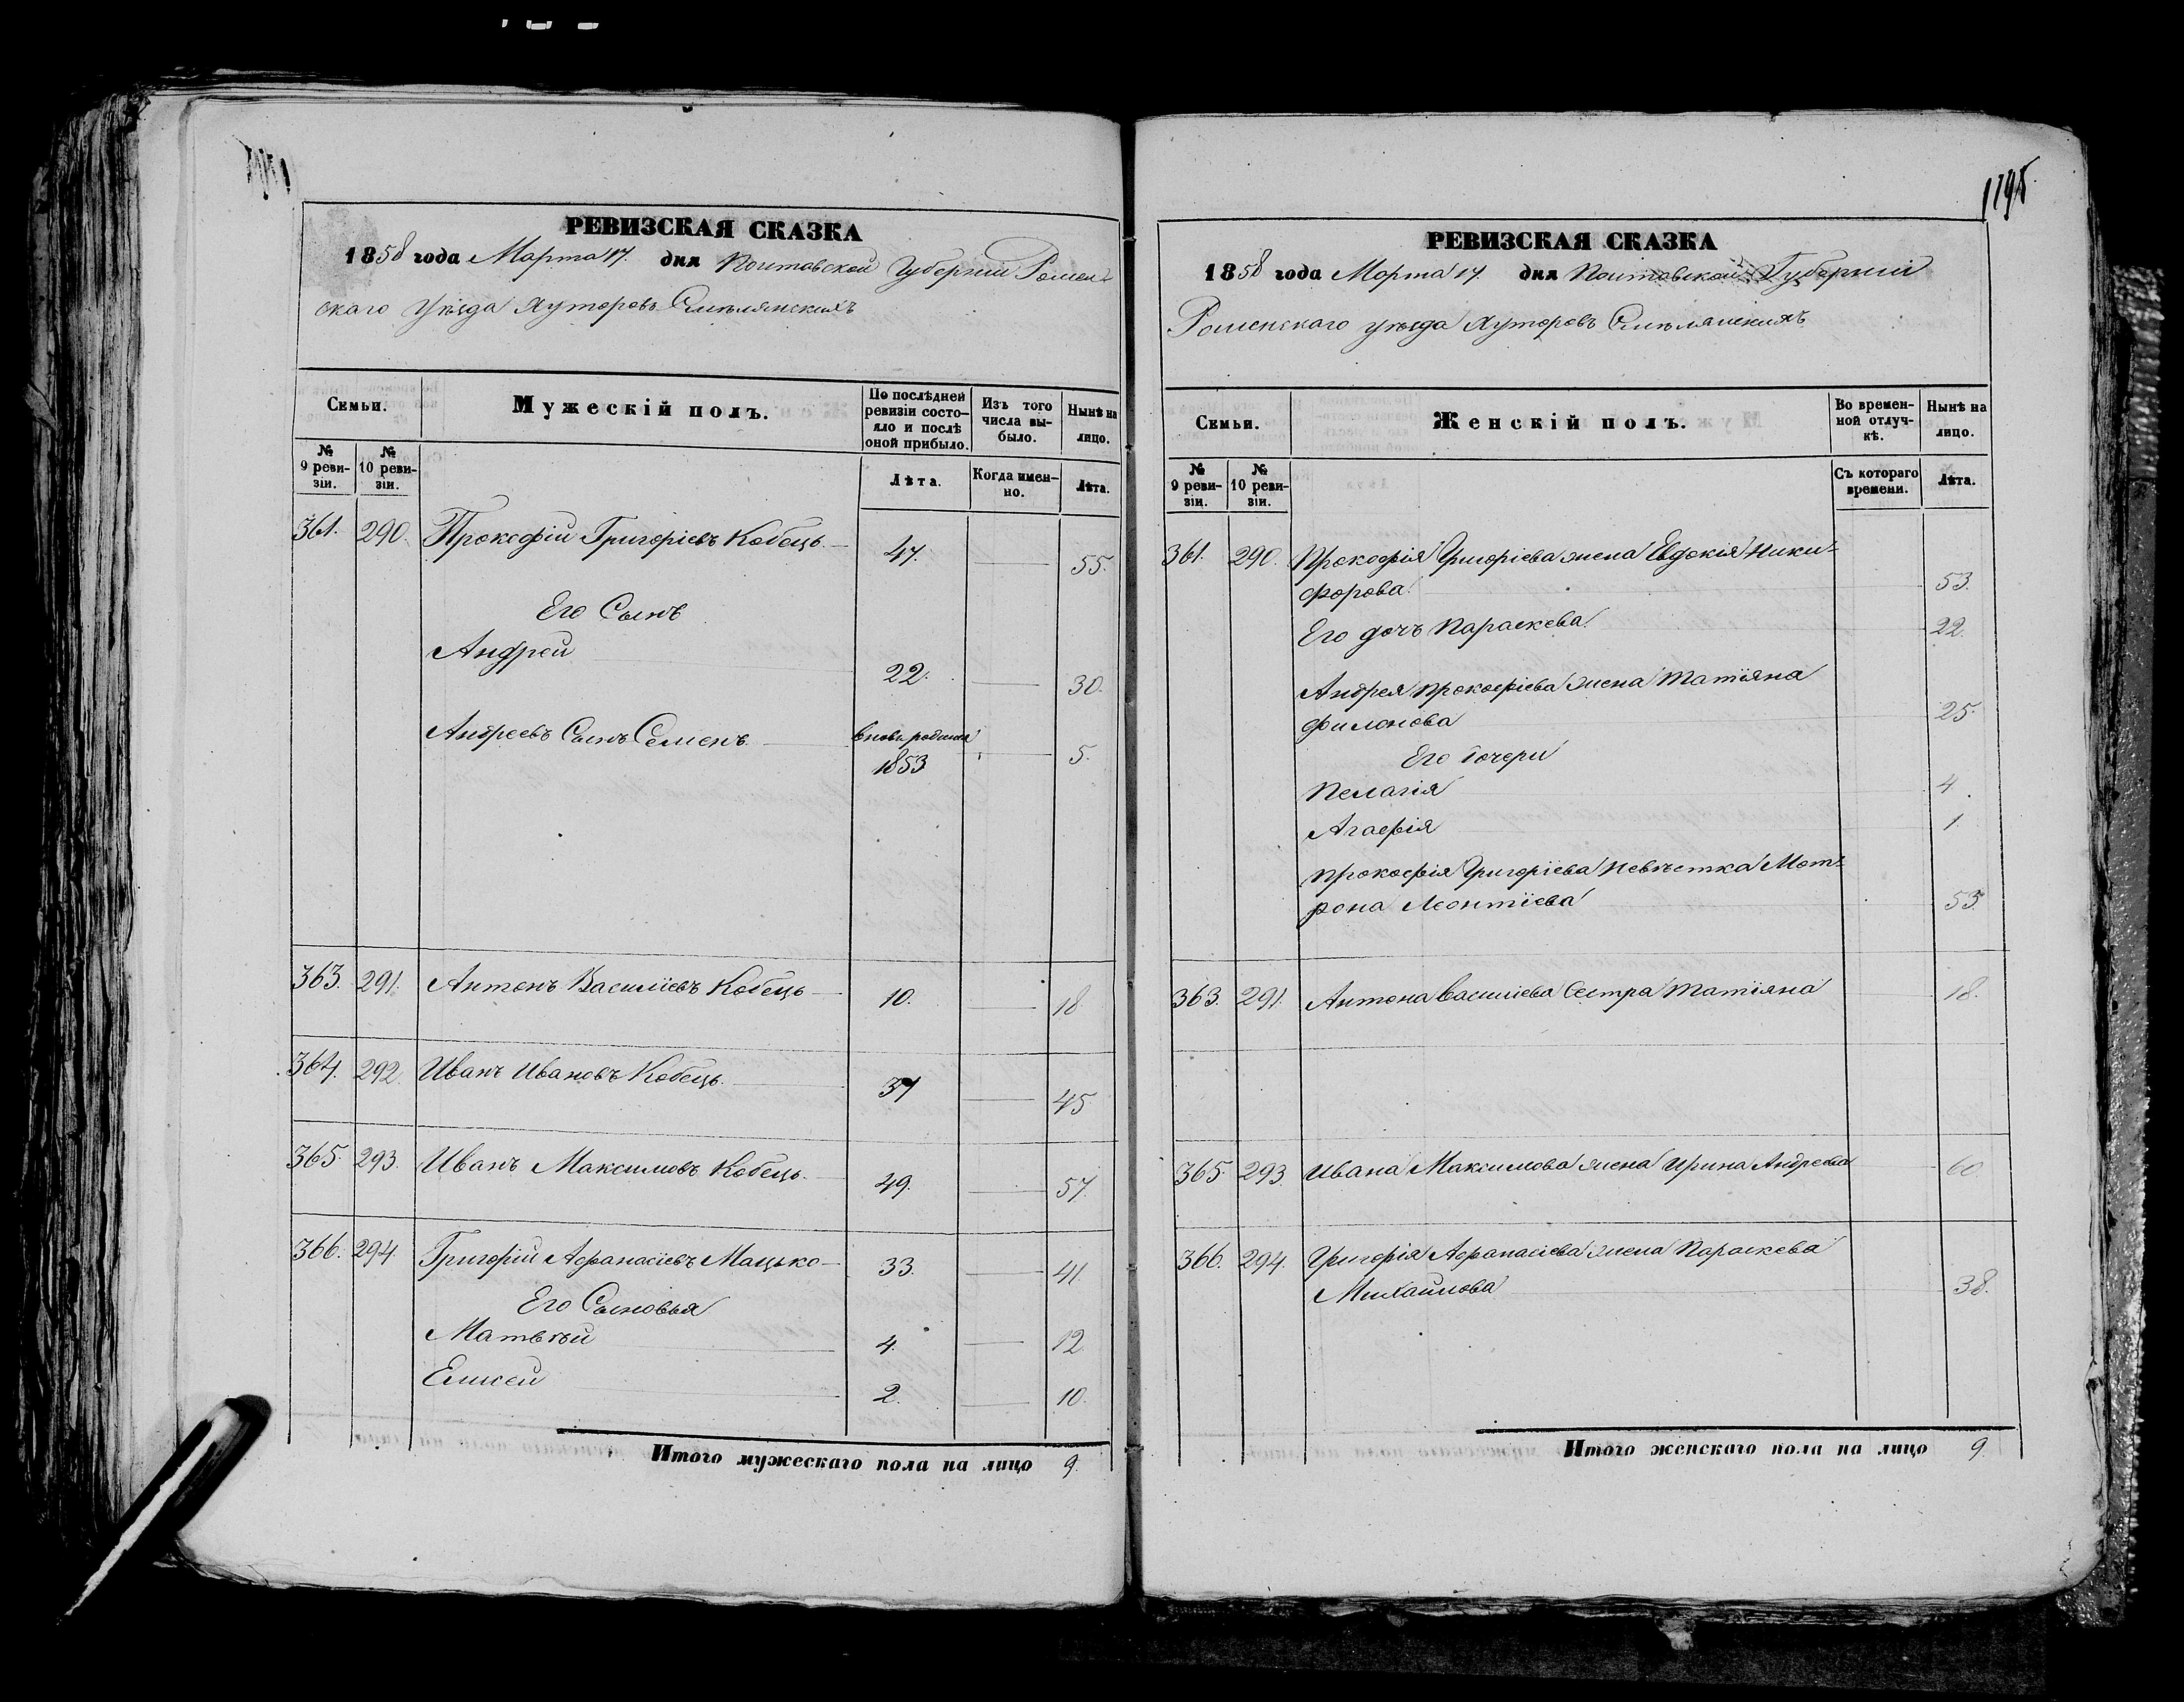 РЕВИЗСКАЯ СКАЗКА
1858 года Марта 17. дня Полтавской Губерніи Ромен-
скаго Уѣзда Хуторовъ Смѣлянскихъ
Семьи.
Мужескій полъ.
По послѣдней
ревизіи состо-
яло и послѣ
оной прибыло.
Изъ того
числа вы-
было.
Нынѣ на
лицо.
№
9 реви-
зіи.
№
10 реви-
зіи.
Лѣта.
Когда имен-
но.
Лѣта.
361. 290. Прокофій Григоріевъ Кобець 47. 55.
Его Сынъ
Андрей 22. 30.
Андреевъ Сынъ Семенъ вновь родился 5.
1853
363. 291. Антонъ Василіевъ Кобець 10. 18
364. 292. Иванъ Ивановъ Кобець 37 45
365. 293. Иванъ Максимовъ Кобець 49. 57.
366. 294. Григорій Афанасіевъ Мацько 33. 41.
Его Сыновья
Матвѣй 4. 12
Елисей 2. 10.
Итого мужескаго пола на лицо 9.
1195
РЕВИЗСКАЯ СКАЗКА
1858 года Марта 17. дня Полтавской Губерніи
Роменскаго уѣзда Хуторовъ Смѣлянскихъ
Семьи.
Женскій полъ.
Во времен-
ной отлуч-
кѣ.
Нынѣ на
лицо.
№
9 реви-
зіи.
№
10 реви-
зіи.
Съ котораго
времени.
Лѣта.
361. 290. Прокофія Григоріева жена Евдокія Ники-
форова 53.
Его дочь Параскева 22.
Андрея Прокофіева жена Татіяна
Филонова 25.
Его дочери
Пелагія 4.
Агафія 1.
Прокофія Григоріева невѣстка Мот-
рона Леонтіева 53
363. 291. Антона Василіева Сестра Татіяна 18.
365. 293. Ивана Максимова жена Ирина Андреева 60
366. 294. Григорія Афанасіева жена Параскева
Михайлова 38.
Итого женскаго пола на лицо 9.